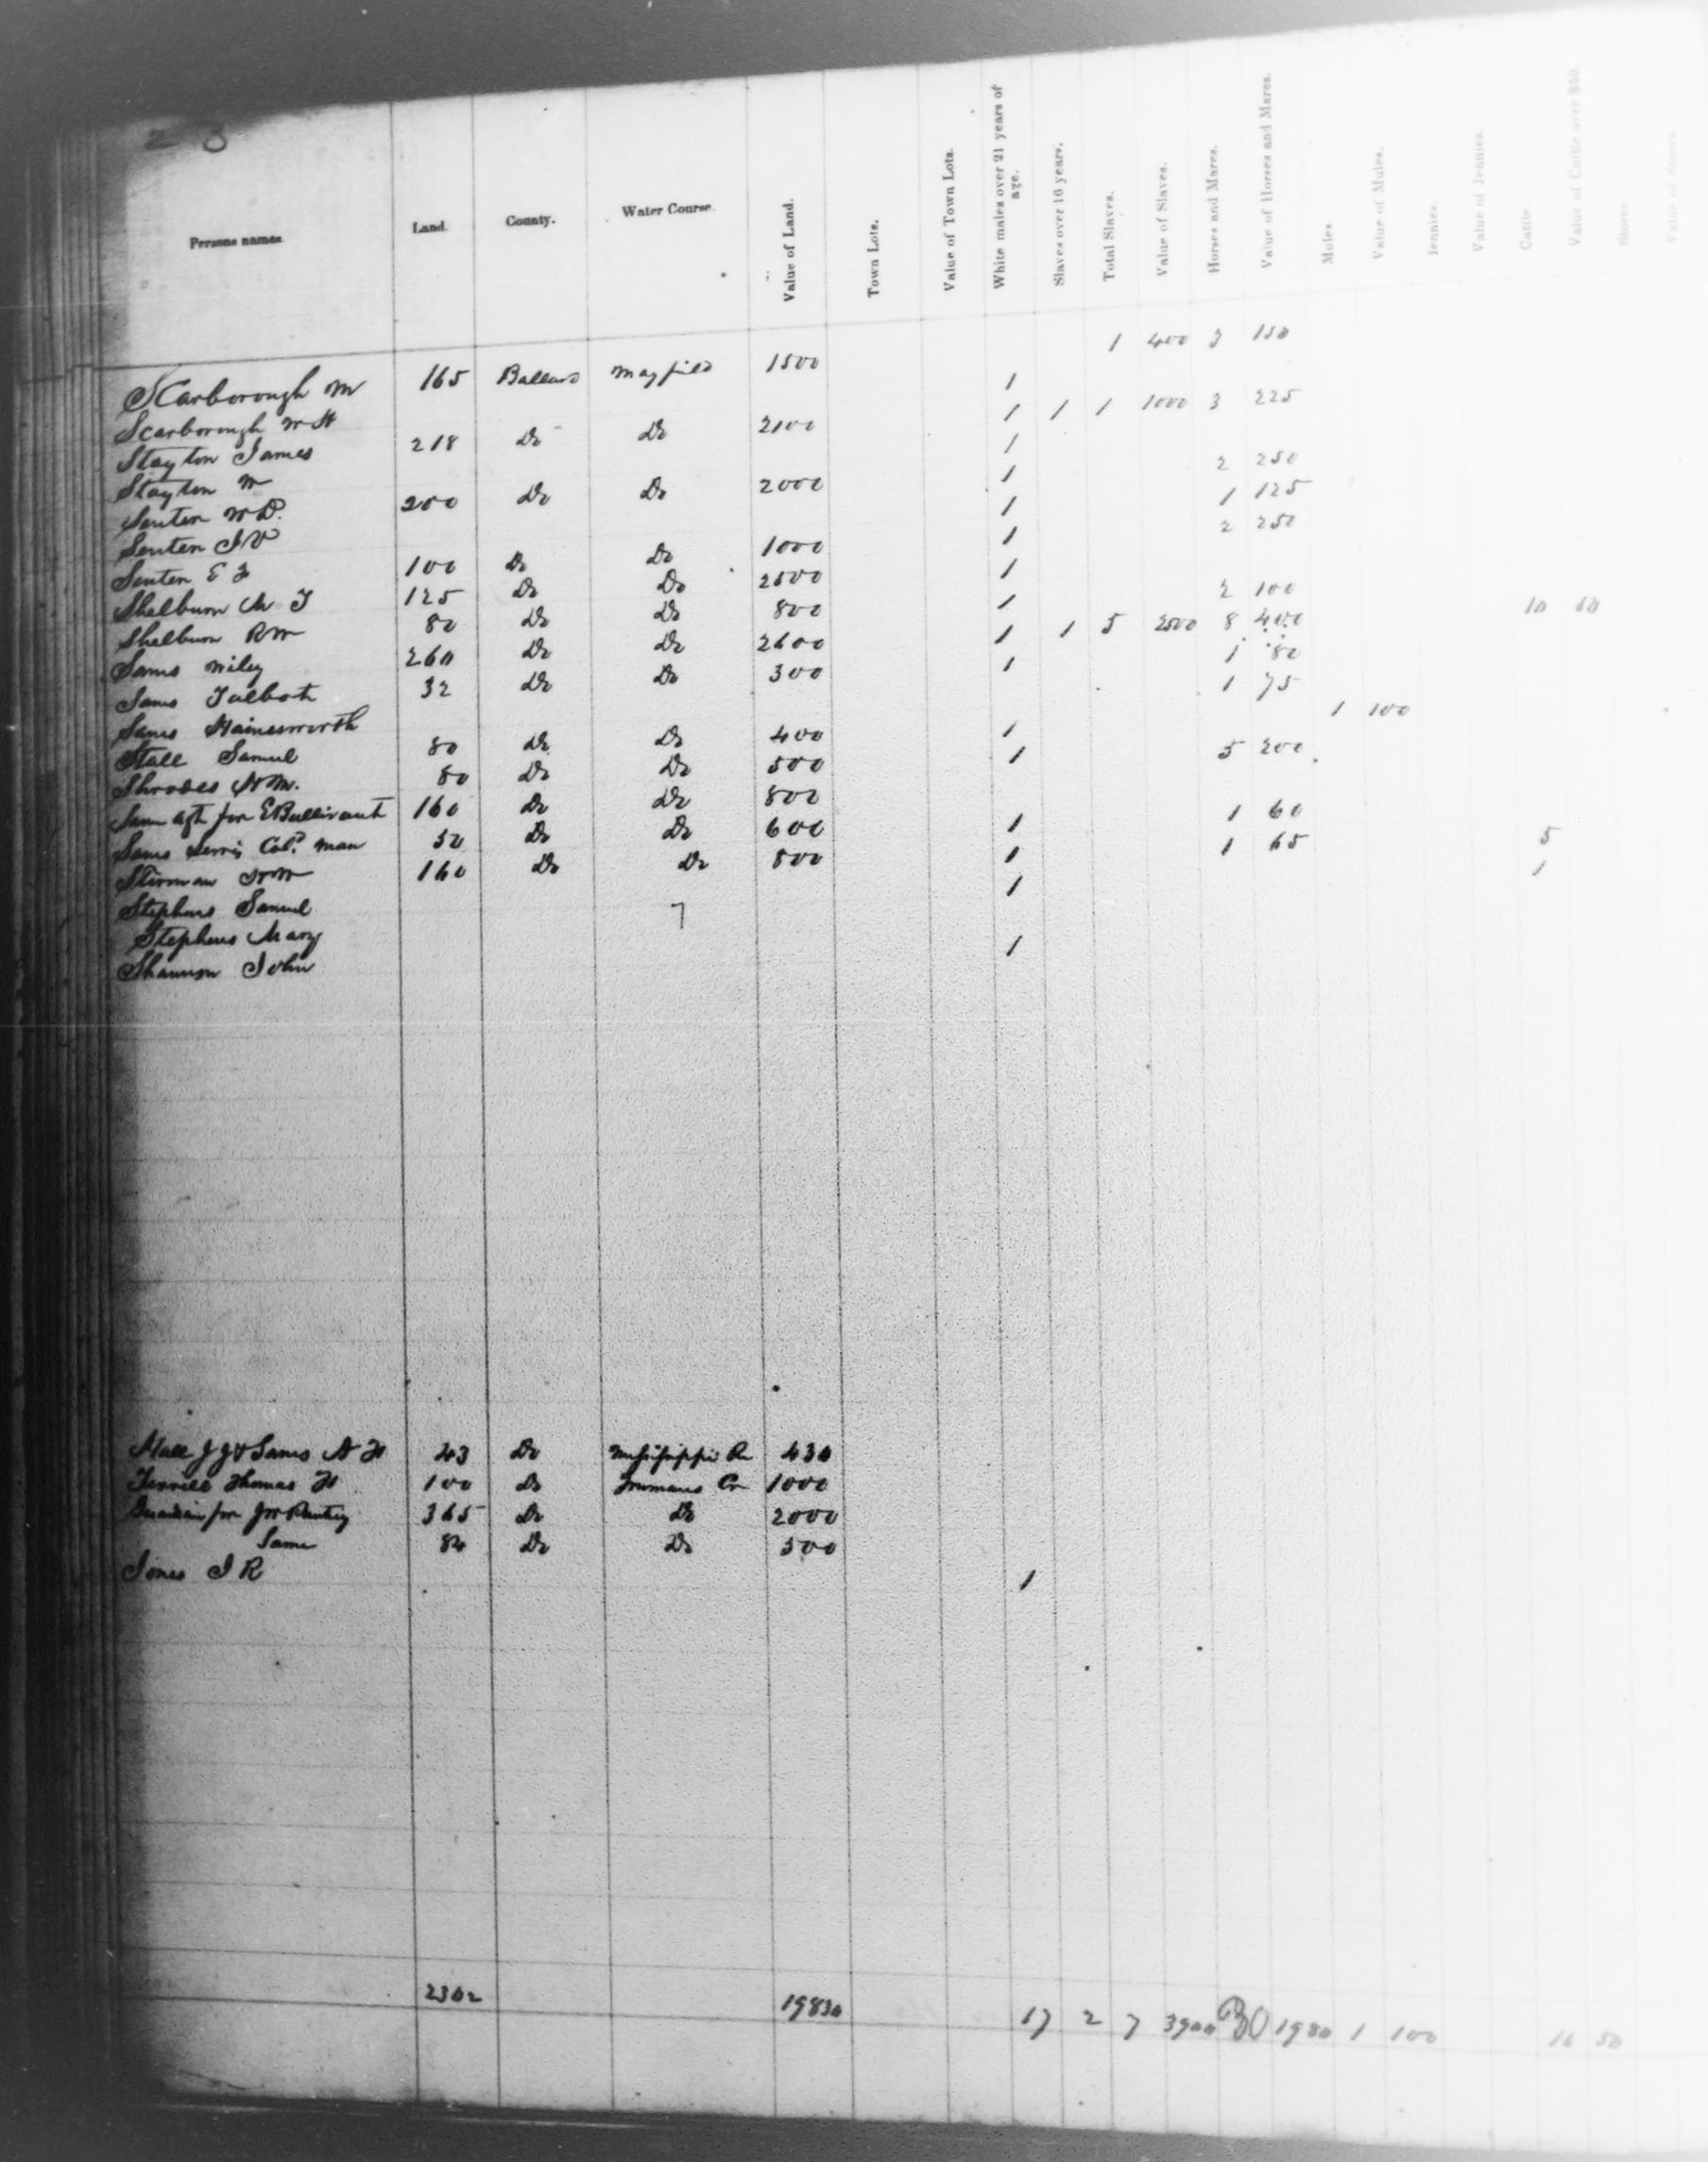 Persons names. Land. County. Water Course. Value of Land. Town Lots. Value of Town Lots. White males over 21 years of age. Slaves over 16 years. Total Slaves. Value of Slaves. Horses and Mares. Value of Horses and Mares. Mules. Value of Mules. Jennies. Value of Jennies. Cattle. Value of Cattle over $50. Stores. Value of Stores.
1 400 3 150
Scarborough M 165 Ballard Mayfield 1500 1
Scarborough W H 1 1 1 1000 3 225
Stayton James 218 Do Do 2100 1
Stayton W 1 2 250
Senter W D. 200 Do Do 2000 1 1 125
Senter J V 1 2 250
Senter E F 100 Do Do 1000 1
Shelburn M T 125 Do Do 2500 1 2 100
Shelburn R W 80 Do Do 800 1 1 5 2500 8 400 10 50
Sams Wiley 260 Do Do 2600 1 1 80
Sams Talbot 32 Do Do 300 1 75
Sams Hainesworth 1 1 100
Stall Samuel 80 Do Do 400 1 5 200
Shrodes W M. 80 Do Do 500
Same agt for E Bullivant 160 Do Do 800 1 1 60
Sams Cold. man 50 Do Do 600 1 1 65 5
W M 160 Do Do 800 1 1
Stephens Samuel
Stephens Mary 1
Shannon John
J J & Sams A F 43 Do Mississippi R 430
Terrell Thomas F 100 Do Trumans Cr 1000
for J W 365 Do Do 2000
Same 84 Do Do 500
Jones J R 1
2302 19830 17 2 7 3900 30 1980 1 100 16 50